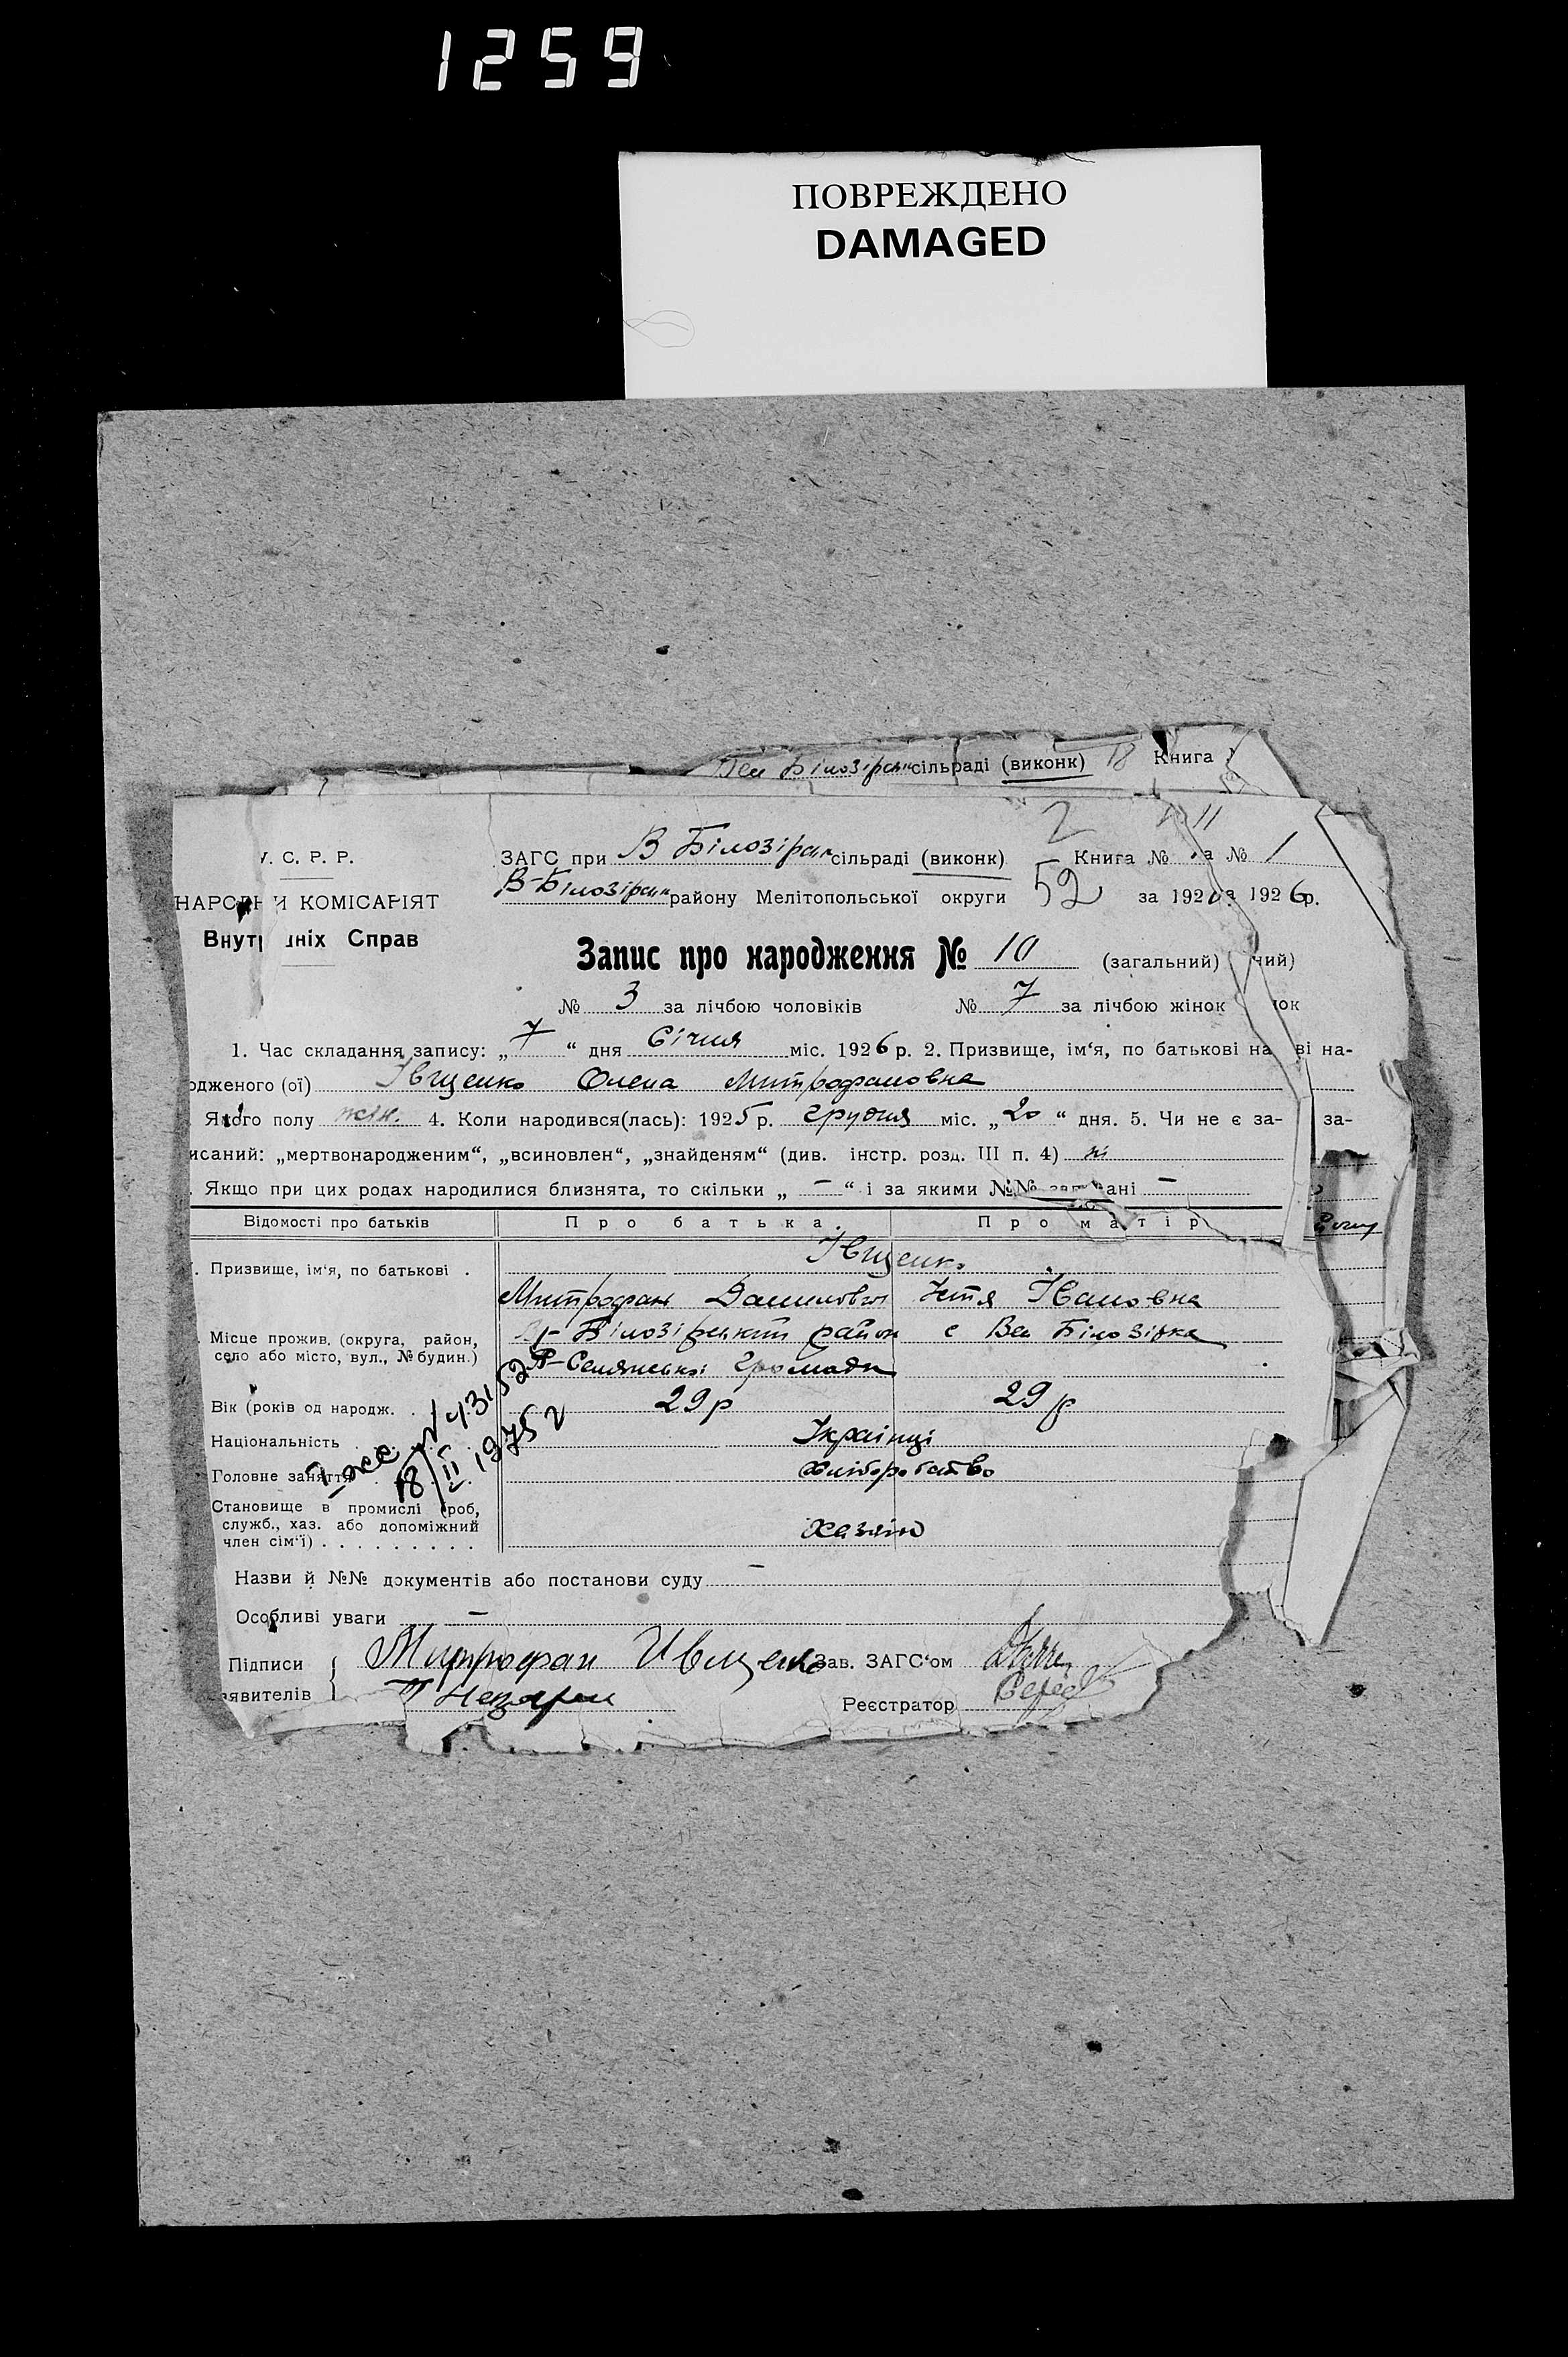 1259
ПОВРЕЖДЕНО
DAMAGED
Вел Білозірск сільраді (виконк) 18 Книга
2 11
У. С. Р. Р.
ЗАГС при В Білозірск сільраді (виконк) Книга № а № 1
НАРОДНИЙ КОМІСАРІЯТ
В-Білозірск району Мелітопольської округи 52 за 192 за 1926 р.
Внутрішніх Справ
Запис про народження № 10 (загальний) чий)
№ 3 за лічбою чоловіків № 7 за лічбою жінок нок
1. Час складання запису: „7“ дня Січня міс. 1926 р. 2. Призвище, ім'я, по батькові на ві на-
одженого (ої) Івщенко Олена Митрофановна
Якого полу жін. 4. Коли народився(лась): 1925 р. грудня міс. „20“ дня. 5. Чи не є за- за-
исаний: „мертвонародженим“, „всиновлен“, „знайденям“ (див. інстр. розд. III п. 4) ні
Якщо при цих родах народилися близнята, то скільки „ — “ і за якими №№ записані —
Відомості про батьків Про батька. Про матір
Призвище, ім'я, по батькові . Івщенко
Митрофан Данилович Устя Івановна
Місце прожив. (округа, район, В-Білозірський район с Вел Білозірка
село або місто, вул., № будин.) Селянської Громади
Вік (років од народж. . 29 р 29 р
Національність Українці
Головне заняття Хліборобство
Становище в промислі (роб,
служб., хаз. або допоміжний Хазяїн
член сім'ї) . . . . . . . . .
18/II 1975 г
Назви й №№ документів або постанови суду —
Особливі уваги —
Підписи Митрофан Ивщенко Зав. ЗАГС'ом
аявителів Реєстратор